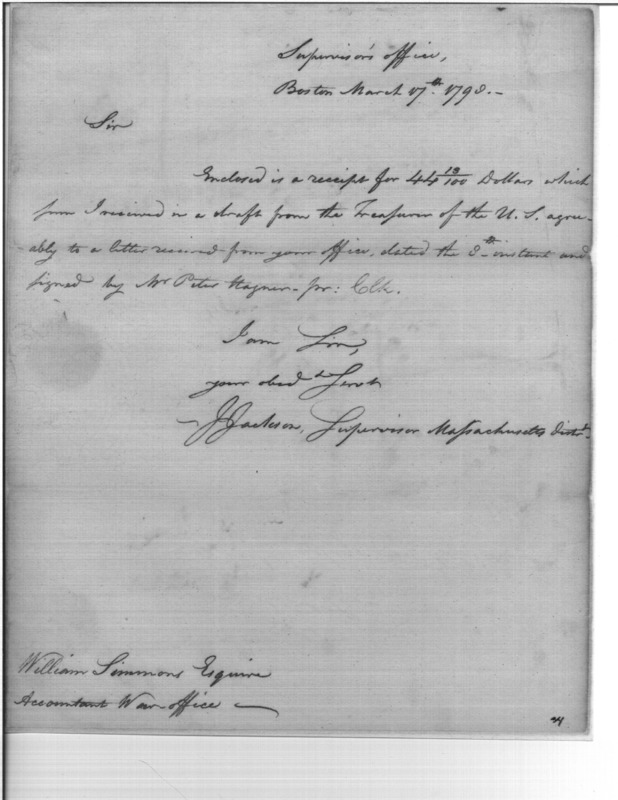 Supervisor's office,
Boston March 17th 1798.-
Sir
Enclosed is a receipt for 44 13/100 Dollars which
sum I received in a draft from the Treasurer of the U. S. agree-
ably to a letter received from your office, dated the 8th instant and
signed by Mr Peter Hagner - jnr: Clk.
I am Sir,
your obedt Servt
J Jackson, Supervisor Massachusetts distt.
William Simmons Esquire
Accountant War-office